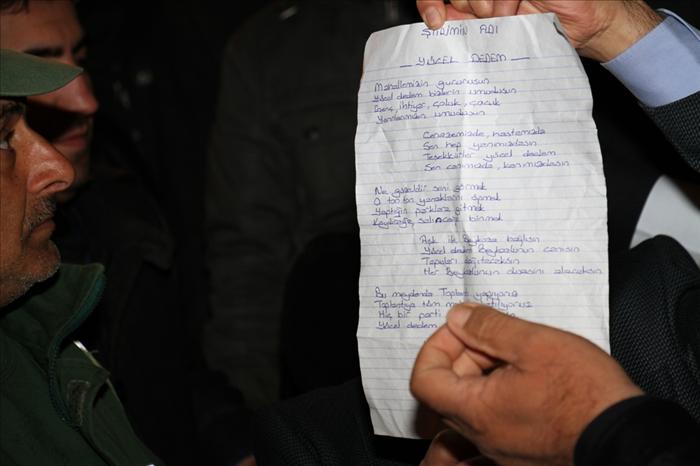 ŞİİRİMİN ADI
YÜCEL DEDEM
Mahallemizin gururusun
Yücel dedem bizlerin umudusun
Genç, ihtiyar, çoluk, çocuk
Yarınlarımızın umudusun
Cenazemizde, hastamızda
Sen hep yanımızdasın
Teşekkürler yücel dedem
Sen canımızda, kanımızdasın
Ne güzeldir seni görmek
O tonton yanaklarını öpmek
Yaptığın parklara gitmek
Kaydırağa, salıncağa binmek
Aşk ile Beykoza bağlısın
Yücel dedem Beykozlunun canısın
Tapuları dağıtacaksın
Her Beykozlunun duasını alacaksın
Bu meydanda Toplantı yapıyoruz
Toplantıya tüm
Hiç bir parti
Yücel dedem